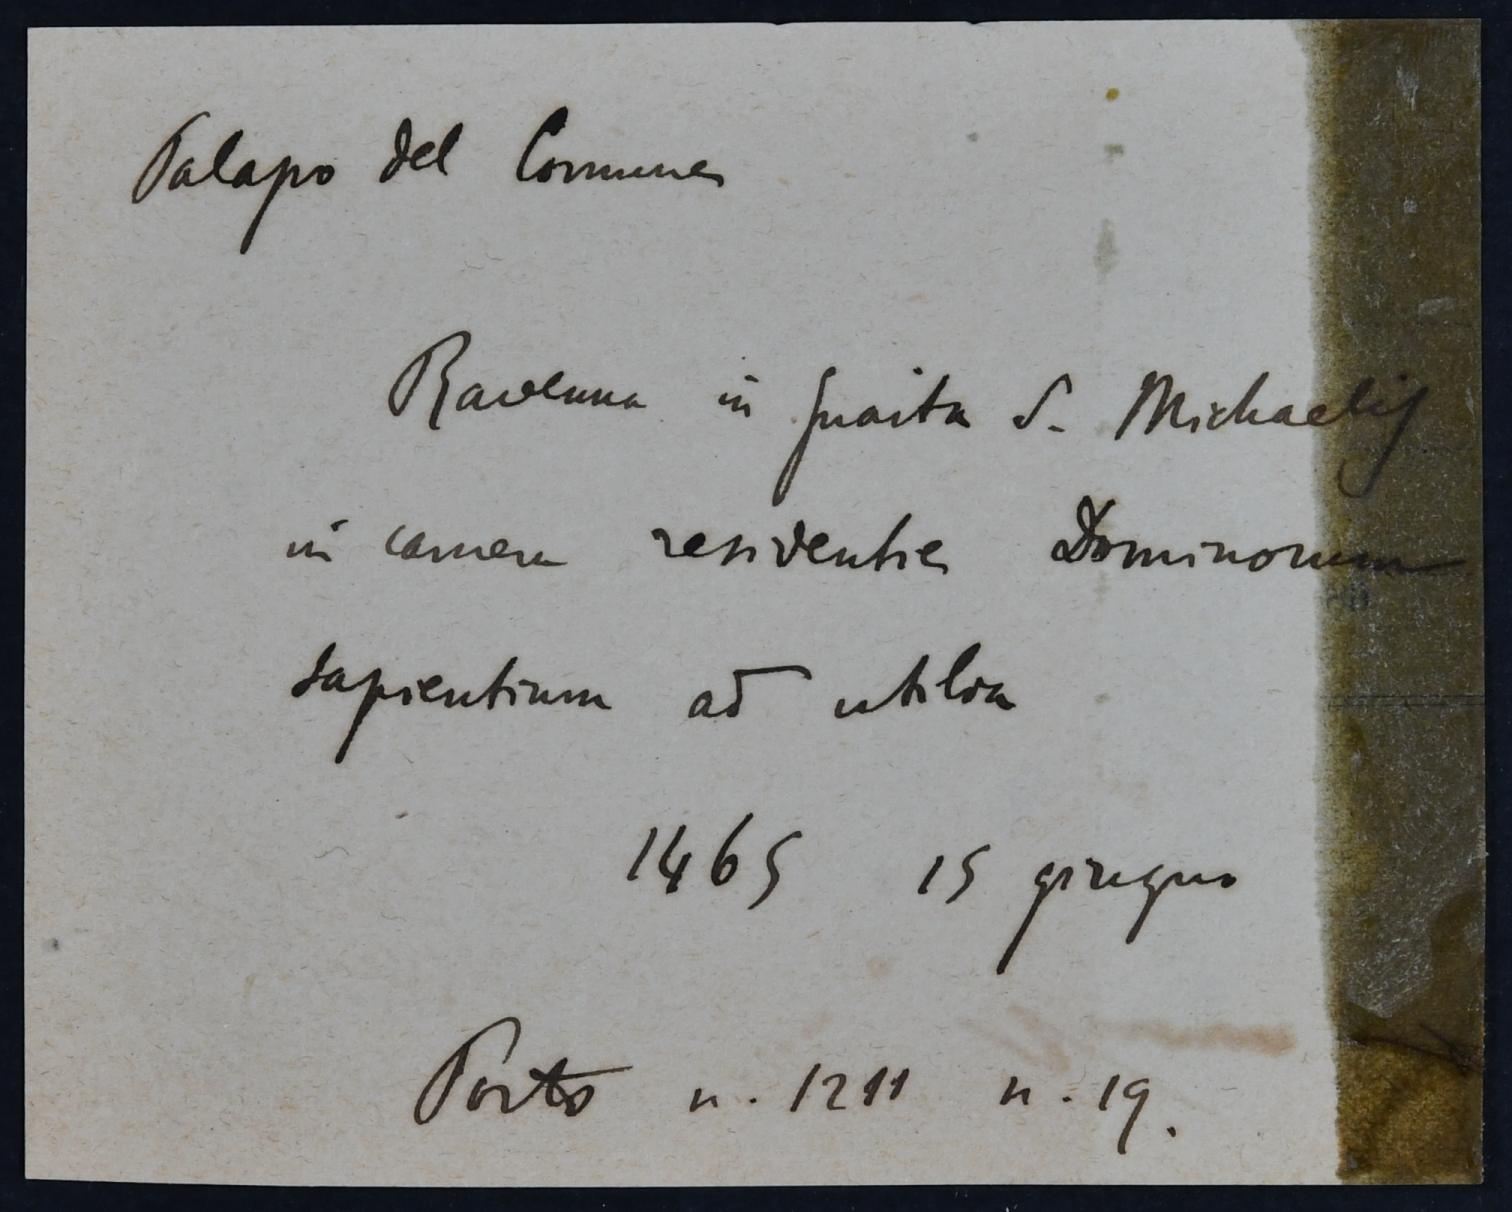 Palazzo del Comune
Ravenna in guaita S. Michaelis
in camera residentie Dominorum
sapientium ad utilia
1465 15 giugno
Porto n. 1211 n. 19.